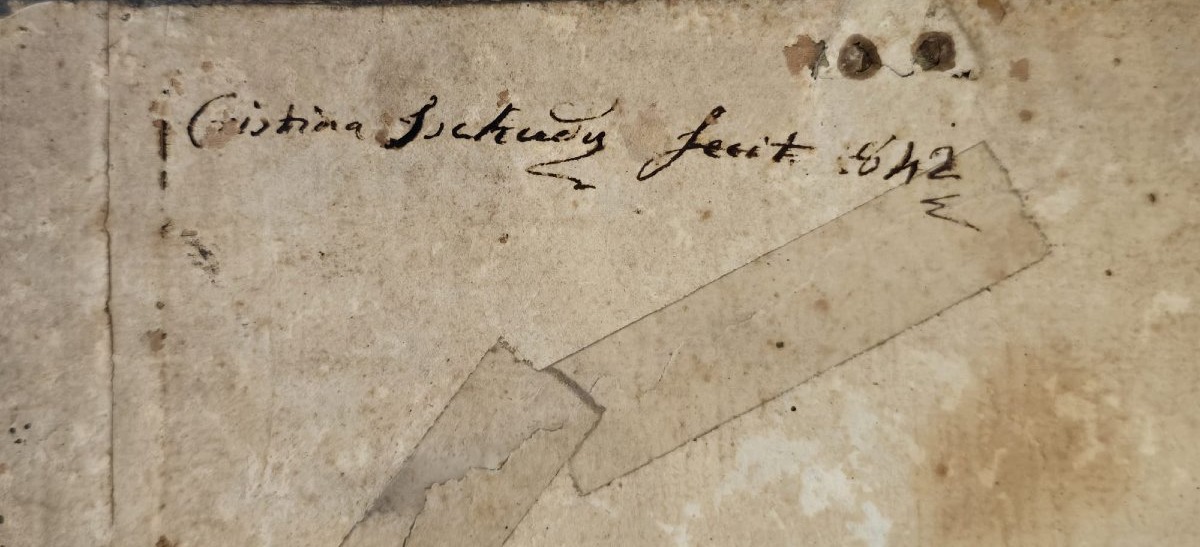 Cristina Tschudy fecit 1842